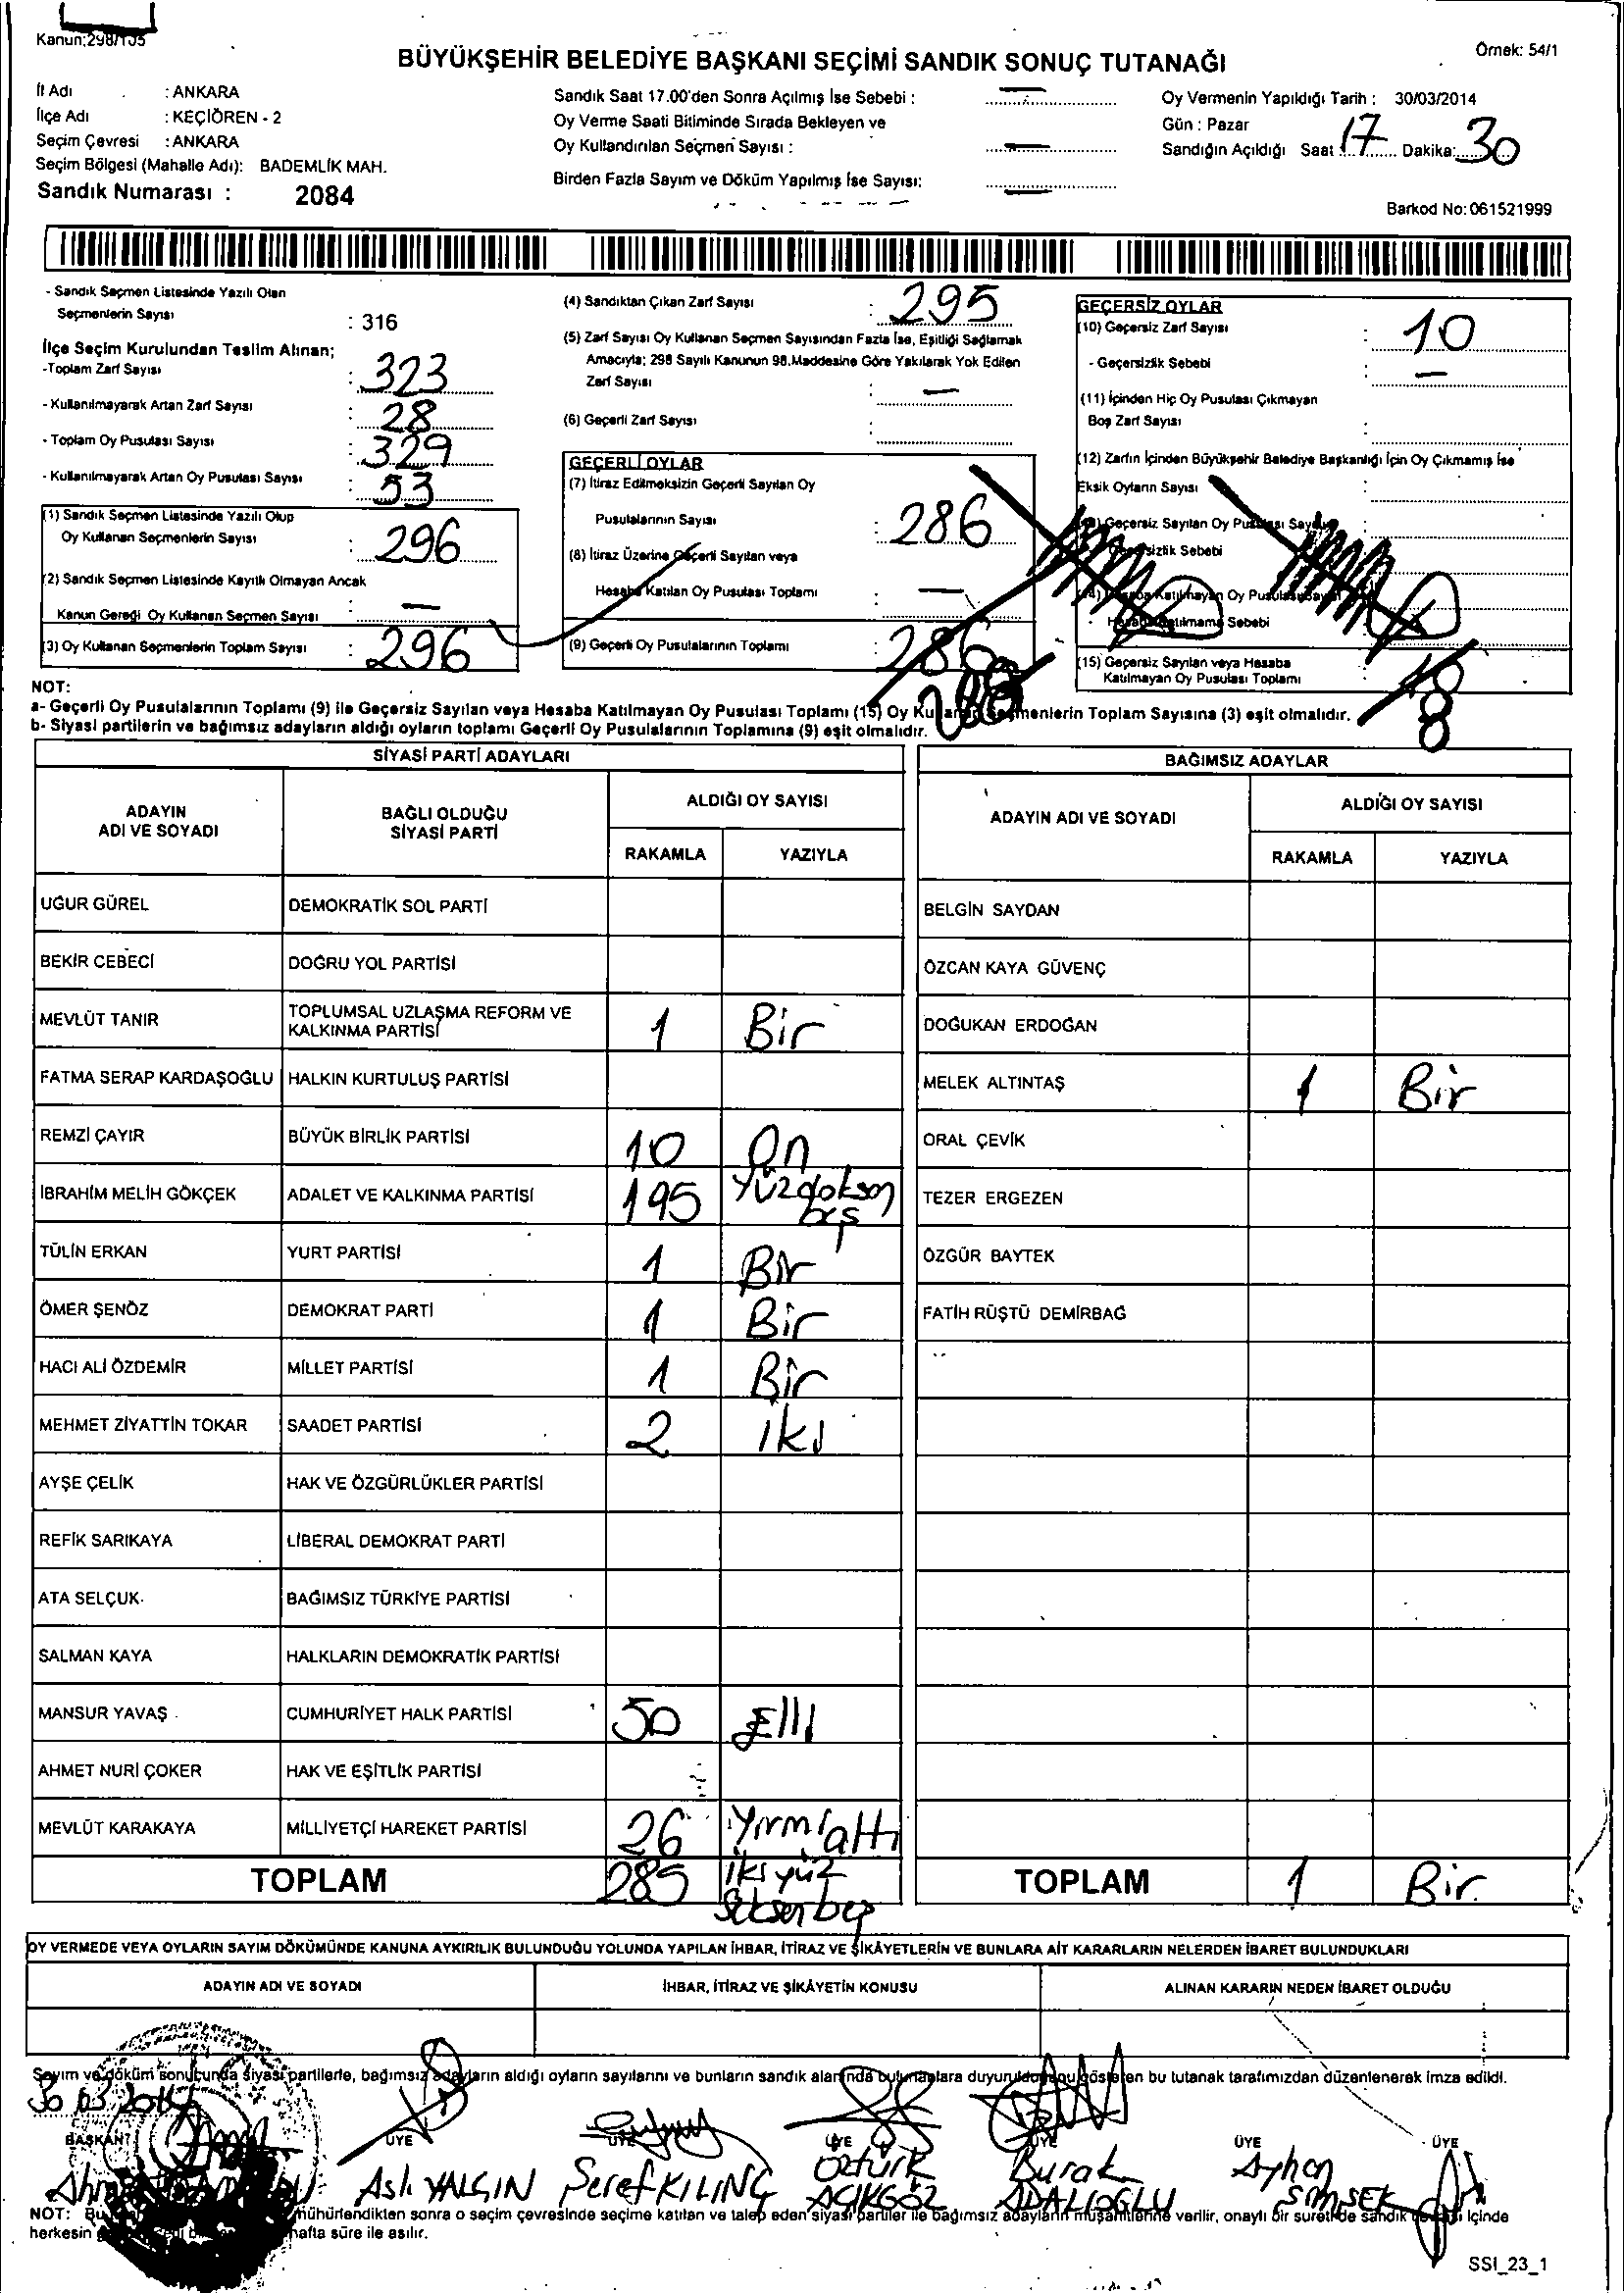 Kanun:298/105
Örnek: 54/1
BÜYÜKŞEHİR BELEDİYE BAŞKANI SEÇİMİ SANDIK SONUÇ TUTANAĞI
İl Adı : ANKARA
İlçe Adı : KEÇİÖREN - 2
Seçim Çevresi : ANKARA
Seçim Bölgesi (Mahalle Adı): BADEMLİK MAH.
Sandık Numarası : 2084
Sandık Saat 17.00'den Sonra Açılmış İse Sebebi : —
Oy Verme Saati Bitiminde Sırada Bekleyen ve
Oy Kullandırılan Seçmen Sayısı : —
Birden Fazla Sayım ve Döküm Yapılmış İse Sayısı: —
Oy Vermenin Yapıldığı Tarih : 30/03/2014
Gün : Pazar
Sandığın Açıldığı Saat 17 Dakika: 30
Barkod No: 061521999
- Sandık Seçmen Listesinde Yazılı Olan
Seçmenlerin Sayısı : 316
İlçe Seçim Kurulundan Teslim Alınan;
-Toplam Zarf Sayısı : 323
- Kullanılmayarak Artan Zarf Sayısı : 28
- Toplam Oy Pusulası Sayısı : 329
- Kullanılmayarak Artan Oy Pusulası Sayısı : 53
(1) Sandık Seçmen Listesinde Yazılı Olup
Oy Kullanan Seçmenlerin Sayısı : 296
(2) Sandık Seçmen Listesinde Kayıtlı Olmayan Ancak
Kanun Gereği Oy Kullanan Seçmen Sayısı : —
(3) Oy Kullanan Seçmenlerin Toplam Sayısı : 296
(4) Sandıktan Çıkan Zarf Sayısı : 295
(5) Zarf Sayısı Oy Kullanan Seçmen Sayısından Fazla İse, Eşitliği Sağlamak
Amacıyla; 298 Sayılı Kanunun 98.Maddesine Göre Yakılarak Yok Edilen
Zarf Sayısı : —
(6) Geçerli Zarf Sayısı :
GEÇERLİ OYLAR
(7) İtiraz Edilmeksizin Geçerli Sayılan Oy
Pusulalarının Sayısı : 286
(8) İtiraz Üzerine Geçerli Sayılan veya
Hesaba Katılan Oy Pusulası Toplamı : —
(9) Geçerli Oy Pusulalarının Toplamı : 286
GEÇERSİZ OYLAR
(10) Geçersiz Zarf Sayısı : 10
- Geçersizlik Sebebi : —
(11) İçinden Hiç Oy Pusulası Çıkmayan
Boş Zarf Sayısı :
(12) Zarfın İçinden Büyükşehir Belediye Başkanlığı İçin Oy Çıkmamış İse
Eksik Oyların Sayısı :
Geçersiz Sayılan Oy Pusulası Sayısı
Geçersizlik Sebebi
(14) Hesaba Katılmayan Oy Pusulası Sayısı
- Hesaba Katılmama Sebebi
(15) Geçersiz Sayılan veya Hesaba
Katılmayan Oy Pusulası Toplamı :
NOT:
a- Geçerli Oy Pusulalarının Toplamı (9) ile Geçersiz Sayılan veya Hesaba Katılmayan Oy Pusulası Toplamı (15) Oy Kullanan Seçmenlerin Toplam Sayısına (3) eşit olmalıdır.
b- Siyasi partilerin ve bağımsız adayların aldığı oyların toplamı Geçerli Oy Pusulalarının Toplamına (9) eşit olmalıdır.
SİYASİ PARTİ ADAYLARI
ADAYIN ADI VE SOYADI BAĞLI OLDUĞU SİYASİ PARTİ ALDIĞI OY SAYISI
RAKAMLA YAZIYLA
UĞUR GÜREL DEMOKRATİK SOL PARTİ
BEKİR CEBECİ DOĞRU YOL PARTİSİ
MEVLÜT TANIR TOPLUMSAL UZLAŞMA REFORM VE KALKINMA PARTİSİ 1 Bir
FATMA SERAP KARDAŞOĞLU HALKIN KURTULUŞ PARTİSİ
REMZİ ÇAYIR BÜYÜK BİRLİK PARTİSİ 10 On
İBRAHİM MELİH GÖKÇEK ADALET VE KALKINMA PARTİSİ 195 Yüzdoksan beş
TÜLİN ERKAN YURT PARTİSİ 1 Bir
ÖMER ŞENÖZ DEMOKRAT PARTİ 1 Bir
HACI ALİ ÖZDEMİR MİLLET PARTİSİ 1 Bir
MEHMET ZİYATTİN TOKAR SAADET PARTİSİ 2 iki
AYŞE ÇELİK HAK VE ÖZGÜRLÜKLER PARTİSİ
REFİK SARIKAYA LİBERAL DEMOKRAT PARTİ
ATA SELÇUK BAĞIMSIZ TÜRKİYE PARTİSİ
SALMAN KAYA HALKLARIN DEMOKRATİK PARTİSİ
MANSUR YAVAŞ CUMHURİYET HALK PARTİSİ 50 Elli
AHMET NURİ ÇOKER HAK VE EŞİTLİK PARTİSİ
MEVLÜT KARAKAYA MİLLİYETÇİ HAREKET PARTİSİ 26 Yirmi altı
TOPLAM 285 iki yüz Seksen beş
BAĞIMSIZ ADAYLAR
ADAYIN ADI VE SOYADI ALDIĞI OY SAYISI
RAKAMLA YAZIYLA
BELGİN SAYDAN
ÖZCAN KAYA GÜVENÇ
DOĞUKAN ERDOĞAN
MELEK ALTINTAŞ 1 Bir
ORAL ÇEVİK
TEZER ERGEZEN
ÖZGÜR BAYTEK
FATİH RÜŞTÜ DEMİRBAĞ
TOPLAM 1 Bir
OY VERMEDE VEYA OYLARIN SAYIM DÖKÜMÜNDE KANUNA AYKIRILIK BULUNDUĞU YOLUNDA YAPILAN İHBAR, İTİRAZ VE ŞİKÂYETLERİN VE BUNLARA AİT KARARLARIN NELERDEN İBARET BULUNDUKLARI
ADAYIN ADI VE SOYADI İHBAR, İTİRAZ VE ŞİKÂYETİN KONUSU ALINAN KARARIN NEDEN İBARET OLDUĞU
Sayım ve döküm sonucunda siyasi partilerle, bağımsız adayların aldığı oyların sayılarını ve bunların sandık alanında bulunanlara duyurulduğunu gösteren bu tutanak tarafımızdan düzenlenerek imza edildi.
30 03 2014
BAŞKAN ÜYE ÜYE ÜYE ÜYE ÜYE ÜYE
Aslı YALÇIN Şeref KILINÇ Öztürk AÇIKGÖZ Burak ADALIOĞLU Ayhan ŞİMŞEK
NOT: mühürlendikten sonra o seçim çevresinde seçime katılan ve talep eden siyasi partiler ile bağımsız adayların müşahitlerine verilir, onaylı bir sureti de sandık içinde
herkesin hafta süre ile asılır.
SSI_23_1